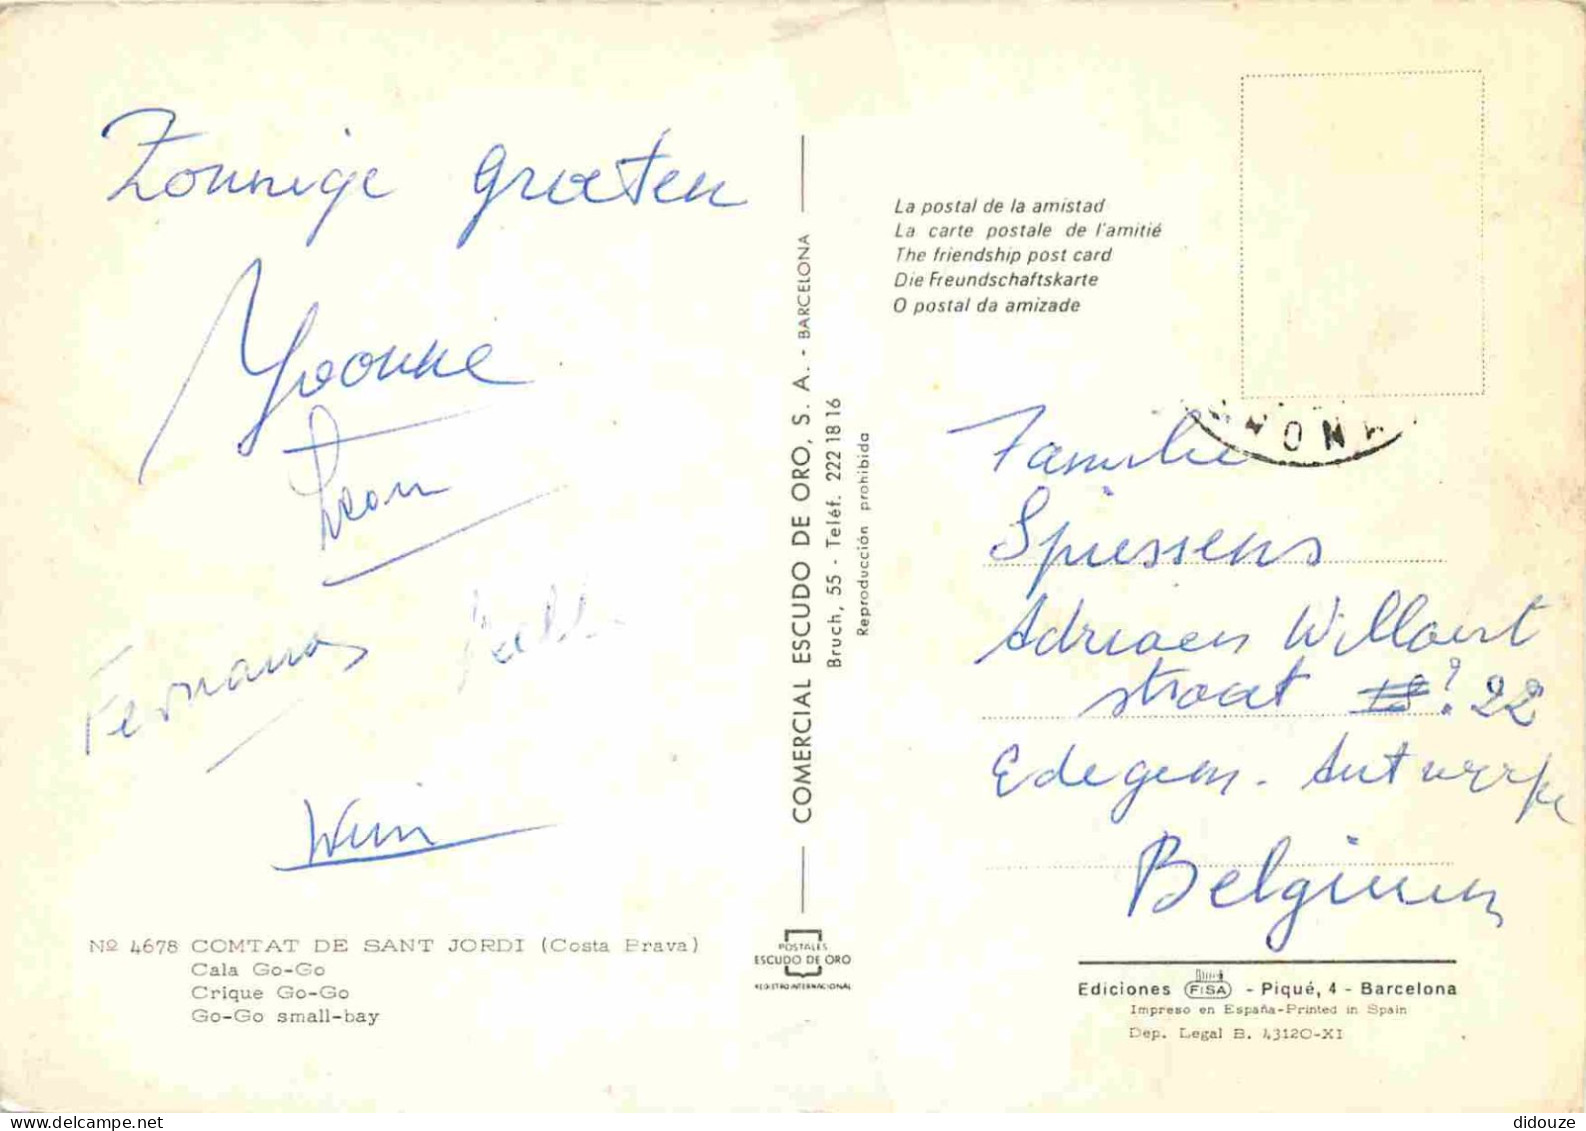 Zonnige groeten
Yvonne
Leon
Fernand
Wim
Nº 4678 COMTAT DE SANT JORDI (Costa Brava)
Cala Go-Go
Crique Go-Go
Go-Go small-bay
COMERCIAL ESCUDO DE ORO, S. A. - BARCELONA
Bruch, 55 - Teléf. 222 18 16
Reproducción prohibida
POSTALES
ESCUDO DE ORO
REGISTRO INTERNACIONAL
La postal de la amistad
La carte postale de l'amitié
The friendship post card
Die Freundschaftskarte
O postal da amizade
Familie
Spiessens
Adriaen Willaert
straat 22
Edegem - Antwerpen
Belgium
Ediciones FISA - Piqué, 4 - Barcelona
Impreso en España-Printed in Spain
Dep. Legal B. 43120-XI
didouze